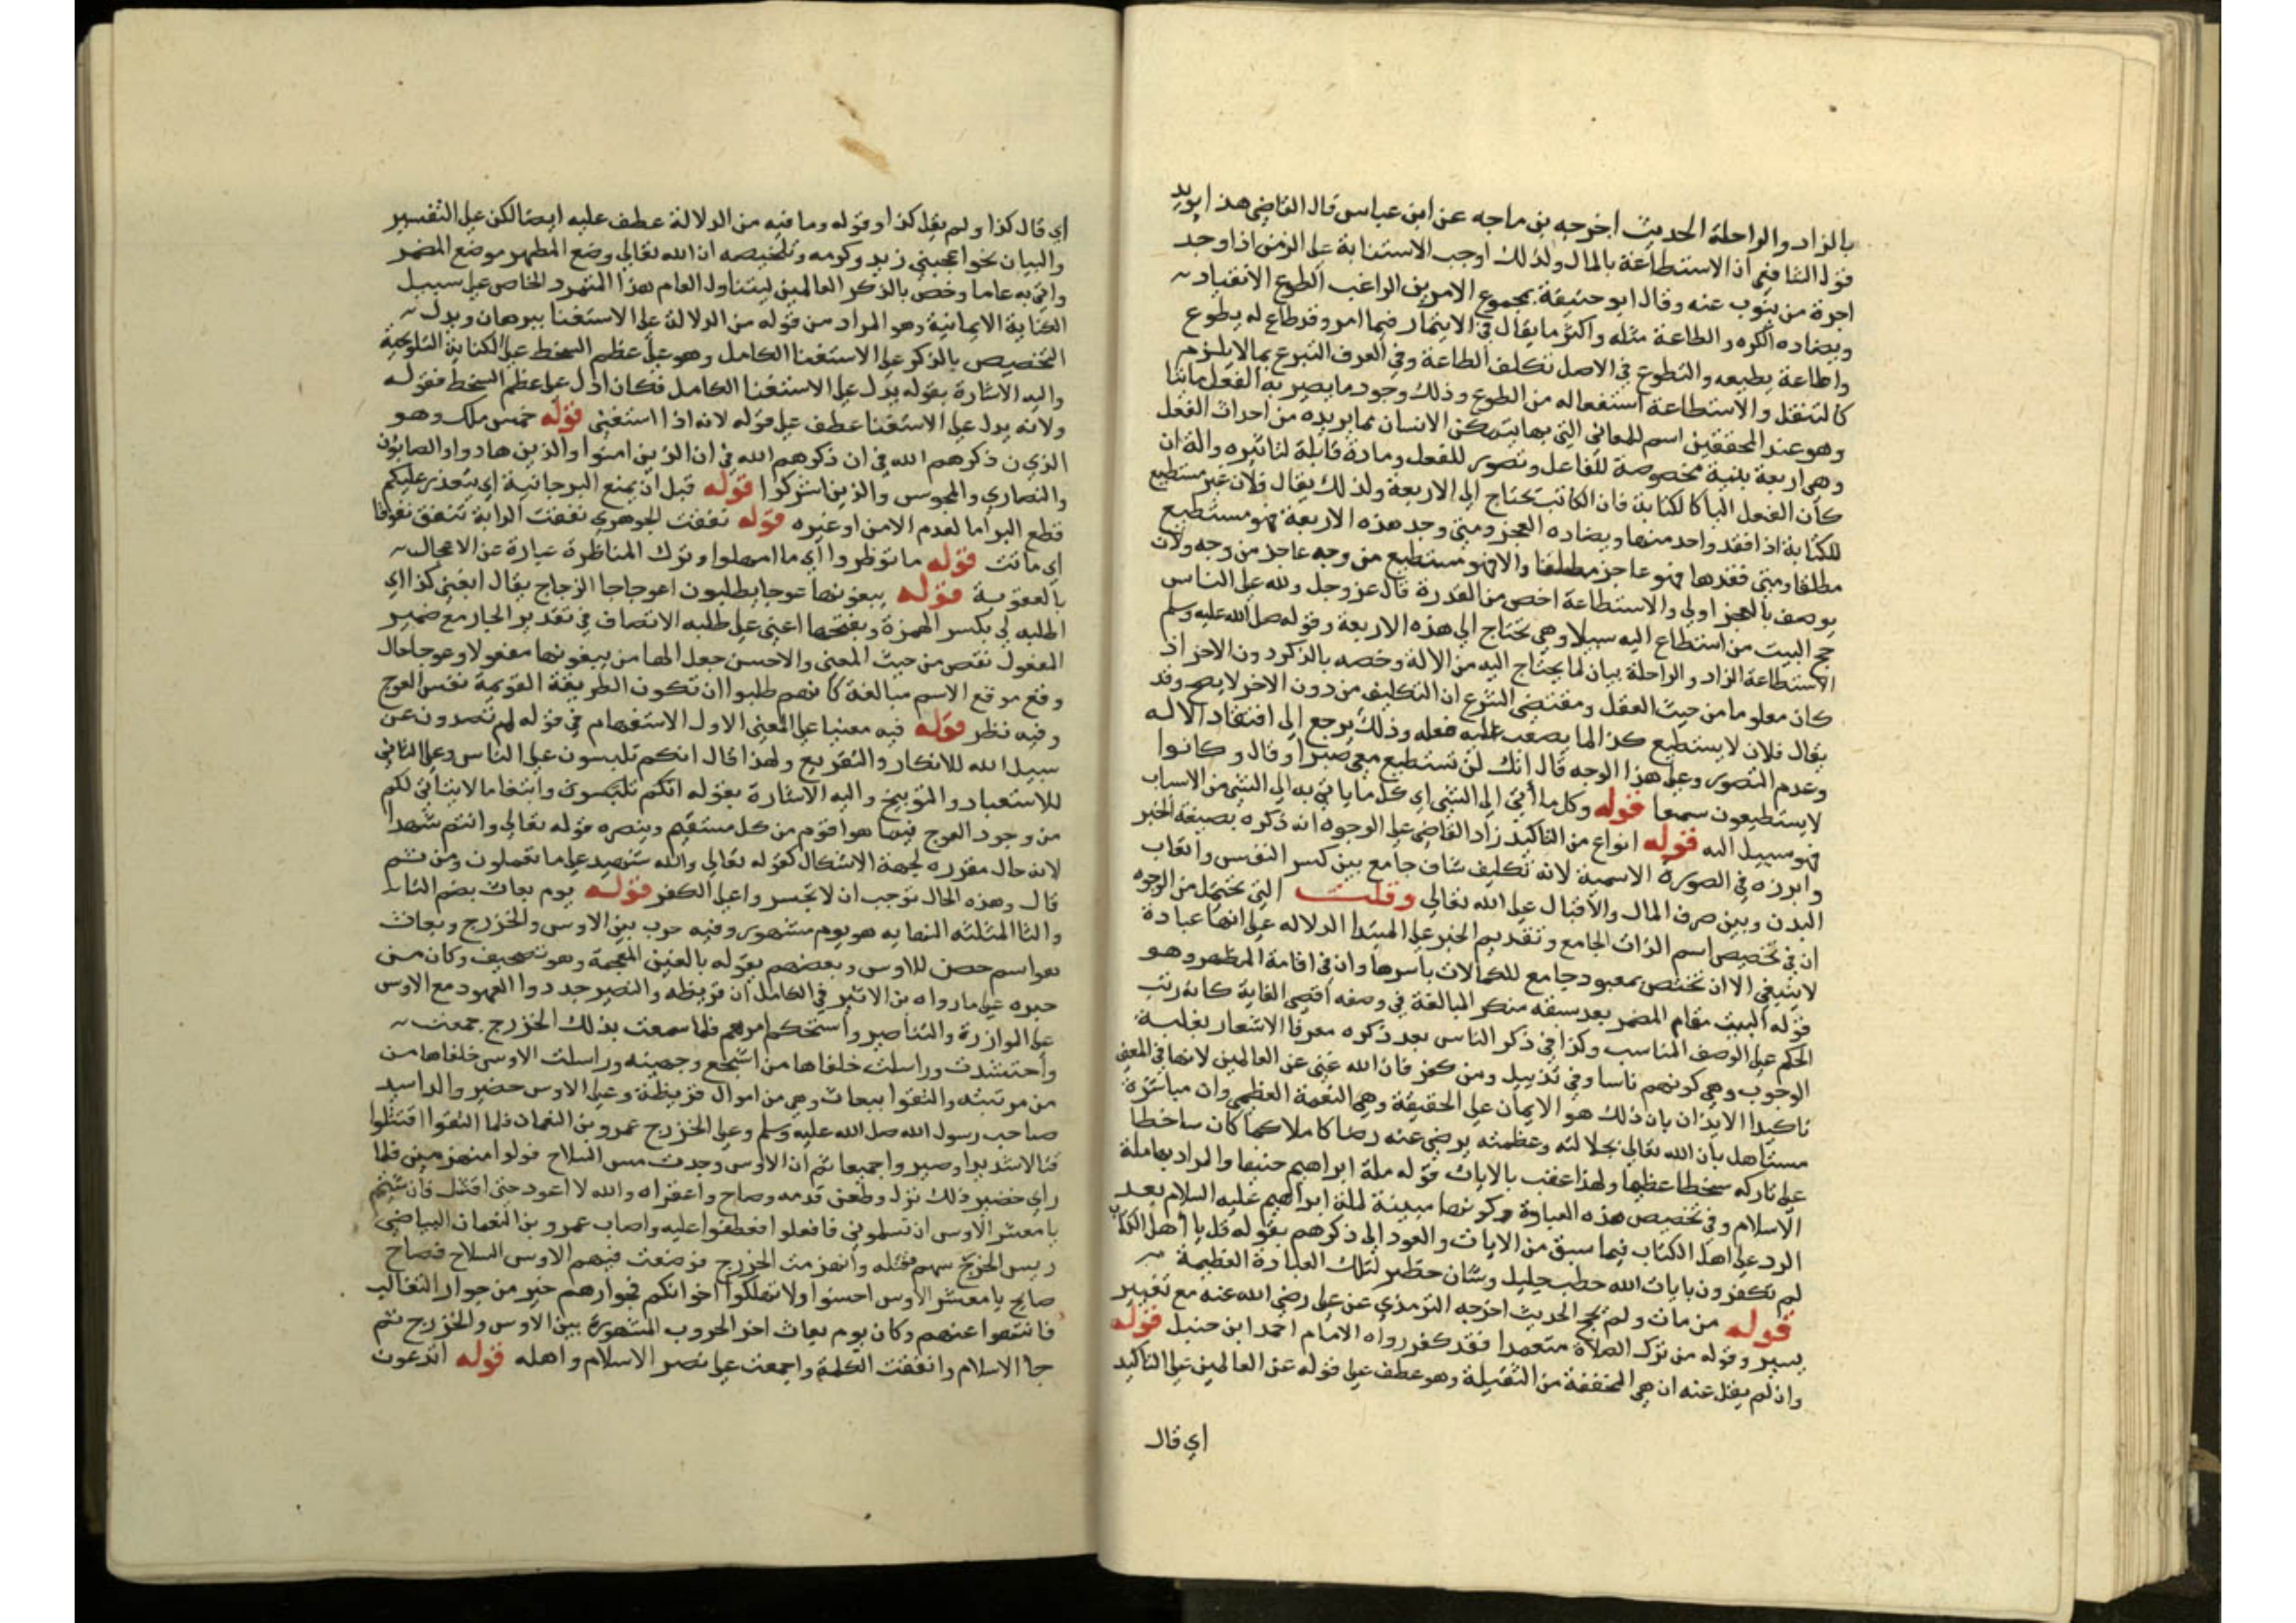 بالزاد والراحلة الحديث اخرجه بن ماجه عن ابن عباس قال القاضي هذا يويد
قول الشافعي ان الاستطاعة بالمال ولذلك اوجب الاستنابة على الزمن اذا وجد
اجرة من ينوب عنه وقال ابو حنيفة بمجموع الامرين الراغب الطوع الانقياد
ويضاده الكره والطاعة مثله واكثر ما يقال في الايتمار فيما امر وقد طاع له يطوع
واطاعة يطيعه والتطوع في الاصل تكلف الطاعة وفي العرف التبرع بما لا يلزم
كالتنفل والاستطاعة استفعاله من الطوع وذلك وجود ما يصير به الفعل ماتتا
وهو عند المحققين اسم للمعاني التي بها يتمكن الانسان مما يريده من احداث الفعل
وهي اربعة بنية مخصوصة للفاعل وتصور للفعل ومادة قابلة لتاثيره والة ان
كان الفعل اليا كالكتابة فان الكاتب يحتاج الى الاربعة ولذلك يقال فلان غير مستطيع
للكتابة اذا فقد واحد منها ويضاده العجز ومتى وجد هذه الاربعة فهو مستطيع
مطلقا ومتى فقدها فهو عاجز مطلقا والا فهو مستطيع من وجه عاجز من وجه ولان
يوصف بالعجز اولى والاستطاعة اخص من القدرة قال عز وجل ولله على الناس
حج البيت من استطاع اليه سبيلا وهي تحتاج الى هذه الاربعة وقوله صلى الله عليه وسلم
الاستطاعة الزاد والراحلة بيان لما يحتاج اليه من الالة وخصه بالذكر دون الاخر اذ
كان معلوما من حيث العقل ومقتضى الشرع ان التكليف من دون الاخر لا يصح وقد
يقال فلان لا يستطيع كذا لما يصعب عليه فعله وذلك يرجع الى افتقاد الاله
وعدم التصور وعلى هذا الوجه قال انك لن تستطيع معي صبرا وقال وكانوا
لا يستطيعون سمعا قوله وكل ما أتي الى الشي اي كل ما ياتي به الى الشي من الاسباب
فهو سبيل اليه قوله انواع من التاكيد زاد القاضي على الوجوه انه ذكره بصيغة الخبر
وابرزه في الصورة الاسمية لانه تكليف شاق جامع بين كسر النفس واتعاب
البدن وبين صرف المال والاقبال على الله تعالى وقلت التي تحتمل من الوجوه
ان في تخصيص اسم الذات الجامع وتقديم الخبر على المبتدا الدلاله على انها عبادة
لا ينبغي الا ان تختص بمعبود جامع للكمالات باسرها وان في اقامة المظهر وهو
قوله البيت مقام المضمر بعد سبقه منكر المبالغة في وصفه اقصى الغاية كانه رتب
الحكم على الوصف المناسب وكذا في ذكر الناس بعد ذكره معرفا الاشعار بعلية
الوجوب وهي كونهم ناسا وفي تذييل ومن كفر فان الله غني عن العالمين لانها في المعنى
تاكيدا الايذان بان ذلك هو الايمان على الحقيقة وهي النعمة العظمى وان مباشرة
مستاهل بان الله تعالى بجلالته وعظمته يرضى عنه رضا كاملا كما كان ساخطا
على تاركه سخطا عظيما ولهذا عقب بالايات قوله ملة ابراهيم حنيفا والمراد بعاملة
الاسلام وفي تخصيص هذه العبادة وكونها مبينة لملة ابراهيم عليه السلام بعد
الرد على اهل الكتاب فيما سبق من الايات والعود الى ذكرهم بقوله قل يا اهل الكتاب
لم تكفرون بايات الله خطب جليل وشان خطير لتلك العبادة العظيمة
قوله من مات ولم يحج الحديث اخرجه الترمذي عن علي رضي الله عنه مع تغيير
يسير وقوله من ترك الصلاة متعمدا فقد كفر رواه الامام احمد ابن حنبل قوله
وان لم يقل عنه ان هي المخففة من الثقيلة وهو عطف على قوله عن العالمين على التاكيد
اي قال
اي قال كذا ولم يقل كذا وقوله وما فيه من الدلالة عطف عليه ايضا لكن على التفسير
والبيان نحو اعجبني زيد وكرمه وتلخيصه ان الله تعالى وضع المظهر موضع المضمر
واتى به عاما وخص بالذكر العالمين ليتناول العام هذا المتمرد الخاص على سبيل
الكناية الايمانية وهو المراد من قوله من الدلالة على الاستغنا ببرهان ويدل
التخصيص بالذكر على الاستغنا الكامل وهو على عظم السخط على الكناية التلويحية
واليه الاشارة بقوله يدل على الاستغنا الكامل فكان ادل على عظم السخط فقوله
ولانه يدل على الاستغنا عطف على قوله لانه اذا استغنى قوله خمس ملك وهو
الذين ذكرهم الله في ان ذكرهم الله في ان الذين امنوا والذين هادوا والصابئون
والنصارى والمجوس والذين اشركوا قوله قبل ان يمنع البر جانبه اي يتعذر عليكم
قطع البر اما لعدم الامن او غيره قوله نفقت الجوهري نفقت الدابة تنفق نفوقا
اي ماتت قوله ما نوظروا اي ما امهلوا وترك المناظرة عبارة عن الاعجال
بالعقوبة قوله يبغونها عوجا يطلبون اعوجاجا الزجاج يقال ابغني كذا اي
اطلبه لي بكسر الهمزة وبفتحها اعني على طلبه الانتصاف في تقدير الجار مع ضمير
المفعول نقص من حيث المعنى والاحسن جعل الها من يبغونها مفعولا وعوجا حال
وقع موقع الاسم مبالغة كانهم طلبوا ان تكون الطريقة القويمة نفس العوج
وفيه نظر قوله فيه معنيا على المعنى الاول الاستفهام في قوله لم تصدون عن
سبيل الله للانكار والتقريع ولهذا قال انكم تلبسون على الناس وعلى الثاني
للاستبعاد والتوبيخ واليه الاشارة بقوله انكم تلبسون وابتغا ما لا يتاتى لكم
من وجود العوج فيما هو اقوم من كل مستقيم وينصره قوله تعالى وانتم شهدا
لانه حال مقوره لجهة الاشكال كقوله تعالى والله شهيد على ما تعملون ومن ثم
قال وهذه الحال توجب ان لا تجسروا على الكفر قوله يوم بعاث بضم البا
والثا المثلثه النهايه هو يوم مشهور وفيه حرب بين الاوس والخزرج وبعاث
هو اسم حصن للاوس وبعضهم يقوله بالغين المعجمة وهو تصحيف وكان من
خبره على ما رواه بن الاثير في الكامل ان قريظه والنضير جددوا العهود مع الاوس
على الموازرة والتناصر واستحكم امرهم فلما سمعت بذلك الخزرج جمعت
واحتشدت وراسلت خلفاها من اشجع وجهينه وراسلت الاوس خلفاها من
من مزينه والتقوا ببعاث وهي من اموال قريظة وعلى الاوس حضير والد اسيد
صاحب رسول الله صلى الله عليه وسلم وعلى الخزرج عمرو بن النعمان فلما التقوا اقتتلوا
قتالا شديدا وصبروا جميعا ثم ان الاوس وجدت مس السلاح فولوا منهزمين فلما
راى حضير ذلك نزل وطعن قدمه وصاح واعقراه والله لا اعود حتى اقتل فان شئتم
يا معشر الاوس ان تسلموني فافعلوا فعطفوا عليه واصاب عمرو بن النعمان البياضي
ريس الخزرج سهم فقتله وانهزمت الخزرج فوضعت فيهم الاوس السلاح فصاح
صايح يا معشر الاوس احسنوا ولا تهلكوا اخوانكم فجوارهم خير من جوار الثعالب
فانتهوا عنهم وكان يوم بعاث اخر الحروب المشهورة بين الاوس والخزرج ثم
جا الاسلام واتفقت الكلمة واجمعت على نصر الاسلام واهله قوله اتدعون